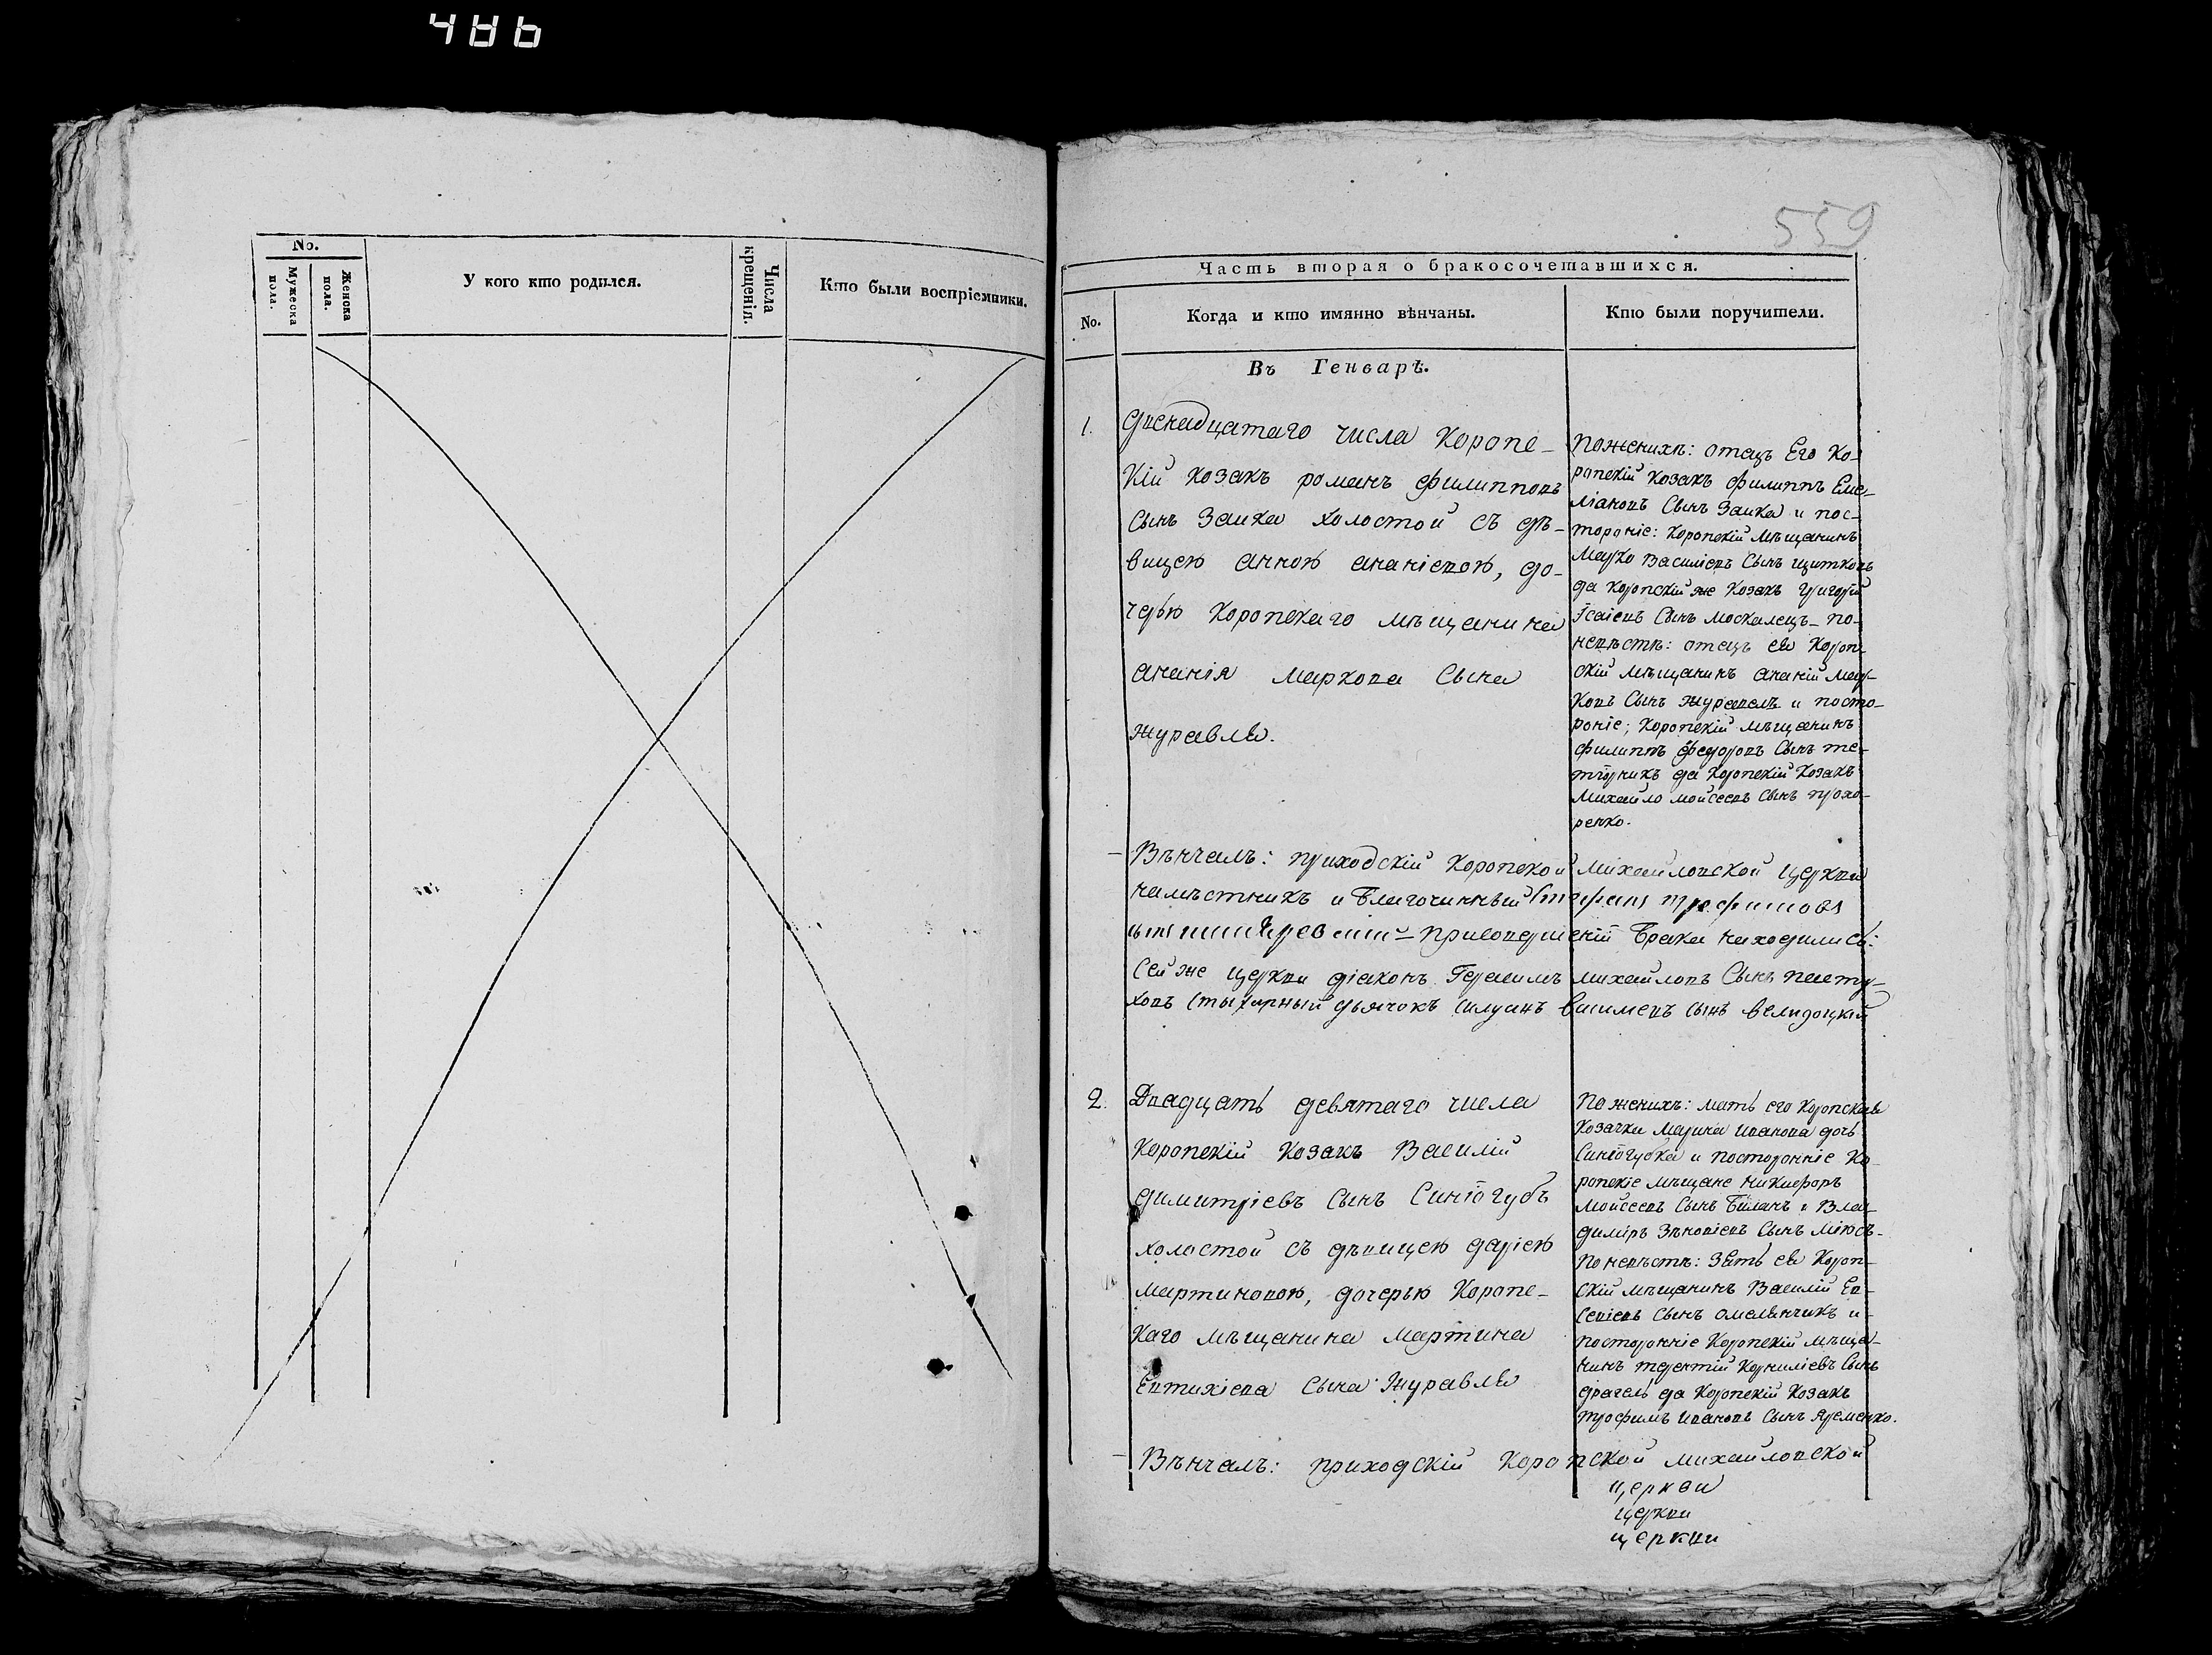 486
No.
Мужеска пола.
Женска пола.
У кого кто родился.
Числа крещенія.
Кто были воспріемники.
559
Часть вторая о бракосочетавшихся.
No.
Когда и кто имянно вѣнчаны.
Кто были поручители.
Въ Генварѣ.
1.
Двенадцатаго числа Коропс-
кій козакъ романъ филипповъ
Сынъ Заика холостой съ дѣ-
вицею анною ананіевою, до-
черью Коропскаго мѣщанина
ананія маркова Сына
журавля.
По женихѣ: отецъ Его Ко-
ропскій козакъ филиппъ Еме-
ліановъ Сынъ Заика и пос-
тороніе: Коропскій мѣщанинъ
марко Василіевъ Сынъ щитковъ
да коропскій же Козакъ григорій
Ісаіевъ Сынъ москалецъ по
невѣстѣ: отецъ ея Короп-
скій мѣщанинъ ананій мар-
ковъ Сынъ журавель и посто-
роніе; Коропскій мѣщанинъ
филиппъ федоровъ Сынъ те-
терникъ да Коропскій Козакъ
Михайло мойсеевъ сынъ прохо-
ренко.
Вѣнчалъ: приходскій Коропской михайловской церкви
намѣстникъ и благочинный Стефанъ трефиловъ
присовершеніи брака находились:
Сей же церкви діаконъ Герасимъ михайловъ Сынъ пасту-
ховъ стыхарный дьячокъ силуанъ сынъ
2.
Двадцать девятаго числа
Коропскій Козакъ Василій
димитріевъ Сынъ Синѣгубъ
холостой съ дѣвицею даріею
мартиновою, дочерью Коропс-
каго мѣщанина мартина
Евтихіева Сына журавля
По женихѣ: мать его коропская
Козачка Марина иванова дочь
Синѣгубка и посторонніе Ко-
ропскіе мѣщане никифоръ
мойсеевъ Сынъ Биланъ и Вла-
димиръ Зѣновіевъ Сынъ
По невѣстѣ: Зять ея Короп-
скій мѣщанинъ Василій Ев-
сѣвіевъ сынъ омелянчикъ и
посторонніе Коропскій мѣща-
нинъ терентій Корниліевъ Сынъ
драгель да Коропскій Козакъ
трофимъ ивановъ Сынъ яременко.
Вѣнчалъ: приходскій Коропской михайловской
церкви
церкви
церкви